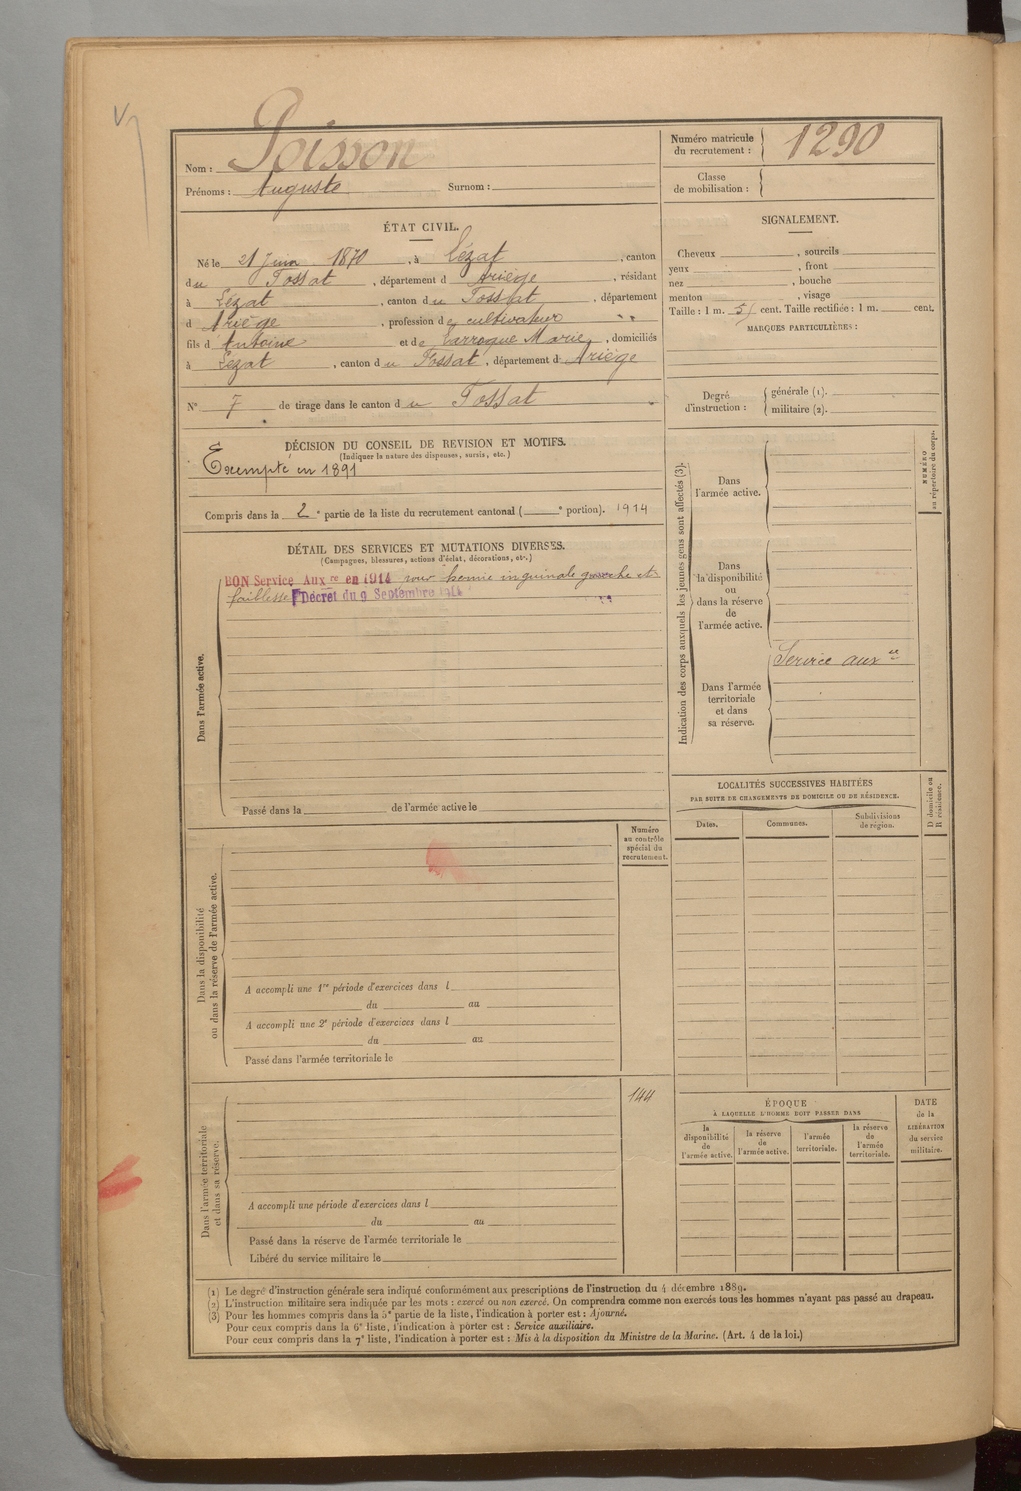 Nom : Poisson
Prénoms : Auguste Surnom :
Numéro matricule du recrutement : 1290
Classe de mobilisation :
ÉTAT CIVIL.
Né le 21 Juin 1870, à Lézat, canton
du Fossat, département d Ariège, résidant
à Lézat, canton du Fossat, département
d Ariège, profession de cultivateur
fils d Antoine et de Larroque Marie, domiciliés
à Lezat, canton du Fossat, département d Ariège
N° 7 de tirage dans le canton du Fossat
SIGNALEMENT.
Cheveux , sourcils
yeux , front
nez , bouche
menton , visage
Taille : 1 m. 51 cent. Taille rectifiée : 1 m. cent.
MARQUES PARTICULIÈRES :
Degré d'instruction : générale (1).
militaire (2).
DÉCISION DU CONSEIL DE REVISION ET MOTIFS.
(Indiquer la nature des dispenses, sursis, etc.)
Exempté en 1891
Compris dans la 2e partie de la liste du recrutement cantonal ( e portion). 1914
DÉTAIL DES SERVICES ET MUTATIONS DIVERSES.
(Campagnes, blessures, actions d'éclat, décorations, etc.)
Dans l'armée active.
BON Service Aux re en 1914 pour hernie inguinale gauche et
faiblesse Décret du 9 Septembre 1914
Passé dans la de l'armée active le
Indication des corps auxquels les jeunes gens sont affectés (3).
NUMÉRO au répertoire du corps.
Dans
l'armée active.
Dans
la disponibilité
ou
dans la réserve
de
l'armée active.
Dans l'armée
territoriale
et dans
sa réserve.
Service aux re
LOCALITÉS SUCCESSIVES HABITÉES
PAR SUITE DE CHANGEMENTS DE DOMICILE OU DE RÉSIDENCE.
Dates. Communes. Subdivisions de région. D domicile ou R résidence.
Numéro
au contrôle
spécial du
recrutement.
Dans la disponibilité
ou dans la réserve de l'armée active.
A accompli une 1re période d'exercices dans l
du au
A accompli une 2e période d'exercices dans l
du au
Passé dans l'armée territoriale le
144
Dans l'armée territoriale
et dans sa réserve.
A accompli une période d'exercices dans l
du au
Passé dans la réserve de l'armée territoriale le
Libéré du service militaire le
ÉPOQUE
À LAQUELLE L'HOMME DOIT PASSER DANS
la disponibilité de l'armée active.
la réserve de l'armée active.
l'armée territoriale.
la réserve de l'armée territoriale.
DATE
de la
LIBÉRATION
du service
militaire.
(1) Le degré d'instruction générale sera indiqué conformément aux prescriptions de l'instruction du 4 décembre 1889.
(2) L'instruction militaire sera indiquée par les mots : exercé ou non exercé. On comprendra comme non exercés tous les hommes n'ayant pas passé au drapeau.
(3) Pour les hommes compris dans la 5e partie de la liste, l'indication à porter est : Ajourné.
Pour ceux compris dans la 6e liste, l'indication à porter est : Service auxiliaire.
Pour ceux compris dans la 7e liste, l'indication à porter est : Mis à la disposition du Ministre de la Marine. (Art. 4 de la loi.)